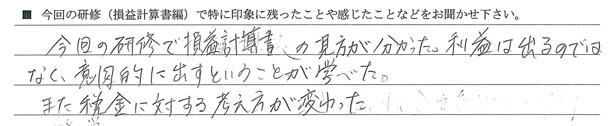 ■ 今回の研修（損益計算書編）で特に印象に残ったことや感じたことなどをお聞かせ下さい。
今回の研修で損益計算書の見方が分かった。利益は出るのでは
なく、意図的に出すということが学べた。
また税金に対する考え方が変わった